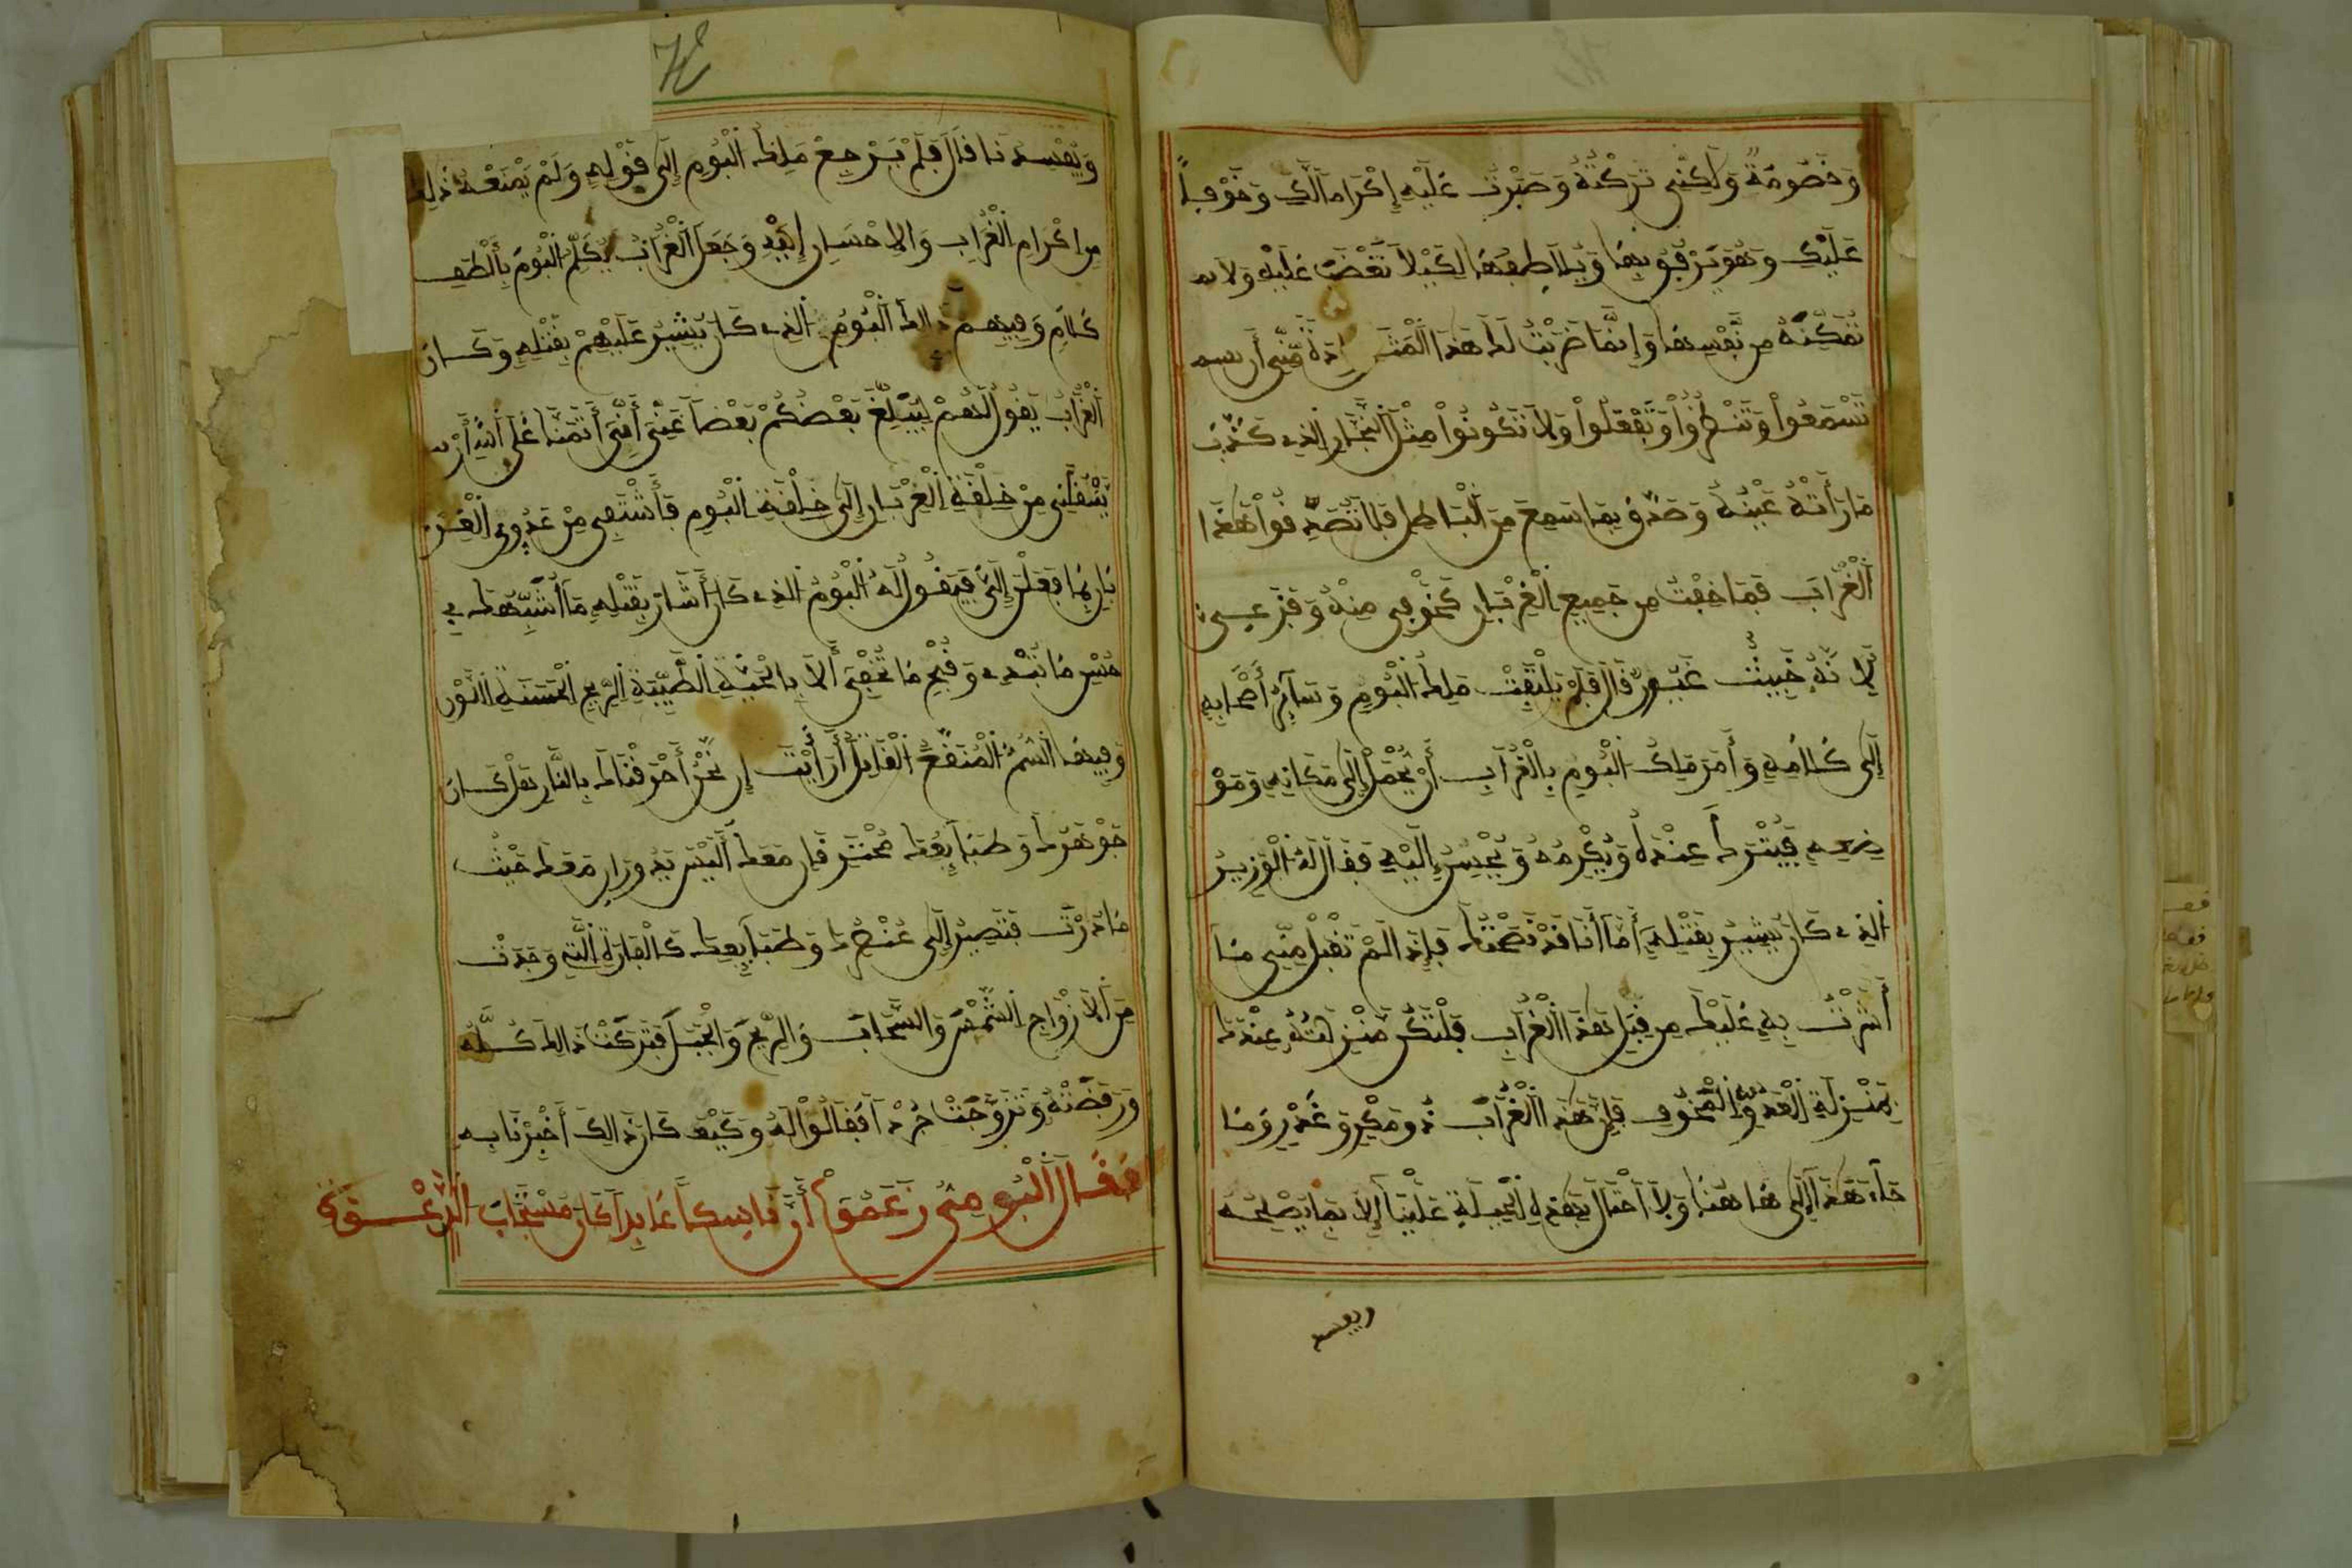 وَخُصُومَةً وَلَكِنِّي تَرَكْتُهُ وَصَبَرْتُ عَلَيْهِ إِكْرَاماً لَكِ وَخَوْفاً
عَلَيْكِ وَهُوَ يَرْقُبُهَا وَيُلَاطِفُهَا لِكَيْلَا تَغْضَبَ عَلَيْهِ وَلَا
تُمَكِّنُهُ مِن نَّفْسِهَا وَإِنَّمَا ضَرَبْتُ لَكَ هَذَا الْمَثَلَ إِرَادَةً مِّنِّي أَن
تَسْمَعُوا وَتَنْظُرُوا وَتَفْعَلُوا وَلَا تَكُونُوا مِثْلَ النَّجَّارِ الَّذِي كَذَّبَ
مَا رَأَتْهُ عَيْنُهُ وَصَدَّقَ بِمَا سَمِعَ مِنَ الْبَاطِلِ فَلَا تُصَدِّقُوا هَذَا
الْغُرَابَ فَمَا خِفْتُ مِن جَمِيعِ الْغِرْبَانِ كَخَوْفِي مِنْهُ وَفَزَعِي
لِأَنَّهُ خَبِيثٌ قَالَ فَلَمْ يَلْتَفِتْ مَلِكُ الْبُومِ وَسَآئِرُ أَصْحَابِهِ
إِلَى كَلَامِهِ وَأَمَرَ مَلِكُ الْبُومِ بِالْغُرَابِ أَنْ يُحْمَلَ إِلَى مَكَانِهِ وَمَوْ
ضِعِهِ فَيُتْرَكَ عِنْدَهُ وَيُكْرِمُهُ وَيُحْسِنُ إِلَيْهِ فَقَالَ لَهُ الْوَزِيرُ
الَّذِي كَانَ يُشِيرُ بِقَتْلِهِ أَمَّا أَنَا فَقَدْ نَصَحْتُكَ فَإِذَا لَمْ تَقْبَلْ مِنِّي مَا
أَشَرْتُ بِهِ عَلَيْكَ مِن قَتْلِ هَذَا الْغُرَابِ فَلْتَكُنْ مَنْزِلَتُهُ عِنْدَكَ
بِمَنْزِلَةِ الْعَدُوِّ الْمَخُوفِ فَإِنَّ هَذَا الْغُرَابَ ذُو مَكْرٍ وَغَدْرٍ وَمَا
جَآءَ هَذَا إِلَى هَا هُنَا وَلَا احْتَالَ بِهَذِهِ الْحِيلَةِ عَلَيْنَا إِلَّا بِمَا يُصْلِحُهُ
ويفسد
وَيُفْسِدُنَا قَالَ فَلَمْ يَرْجِعْ مَلِكُ الْبُومِ إِلَى قَوْلِهِ وَلَمْ يَمْنَعْهُ ذَلِكَ
مِن إِكْرَامِ الْغُرَابِ وَالْإِحْسَانِ إِلَيْهِ وَجَعَلَ الْغُرَابُ يُكَلِّمُ الْبُومَ بِأَلْطَفِ
كَلَامٍ وَفِيهِمْ ذَالِكَ الْبُومُ الَّذِي كَانَ يُشِيرُ عَلَيْهِمْ بِقَتْلِهِ وَكَانَ
الْغُرَابُ يَقُولُ لَهُمْ لِيُبَلِّغْ بَعْضُكُمْ بَعْضاً عَنِّي أَنِّي أَتَمَنَّا عَلَى اللَّهِ أَنْ
يَنْقُلَنِي مِنْ خِلْقَةِ الْغِرْبَانِ إِلَى خِلْقَةِ الْبُومِ فَأَشْتَفِي مِنْ عَدُوِّي الْغِرْ
بَانِ بِمَا فَعَلْنَ إِلَيَّ فَيَقُولُ لَهُ الْبُومُ الَّذِي كَانَ أَشَارَ بِقَتْلِهِ مَا أُشَبِّهُكَ فِي
حُسْنِ مَا تُبْدِي وَقُبْحِ مَا تُخْفِي إِلَّا بِالْحَيَّةِ الطَّيِّبَةِ الرِّيحِ الْحَسَنَةِ اللَّوْنِ
وَفِيهَا السُّمُّ الْمُنَقَّعُ الْقَاتِلُ أَرَأَيْتَ إِن نَحْنُ أَحْرَقْنَاكَ بِالنَّارِ هَلْ كَانَ
جَوْهَرُكَ وَطَبَائِعُكَ تَحْتَرِقَانِ مَعَكَ أَلَيْسَ يَدُورَانِ مَعَكَ حَيْثُ
مَا دُرْتَ فَتَصِيرُ إِلَى عُنْصُرِكَ وَطَبَائِعِكَ كَالْفَارَةِ الَّتِي وَجَدَتْ
مِنَ الْأَزْوَاجِ الشَّمْسَ وَالسَّحَابَ وَالرِّيحَ وَالْجَبَلَ فَتَرَكَتْ ذَالِكَ كُلَّهُ
وَرَفَضَتْهُ وَتَزَوَّجَتْ جُرَذاً فَقَالُوا لَهُ وَكَيْفَ كَانَ ذَالِكَ أَخْبِرْنَا بِهِ
فَقَالَ الْبُومِيُّ زَعَمُوا أَنَّ نَاسِكاً عَابِداً كَانَ مُسْتَجَابَ الدَّعْوَةِ